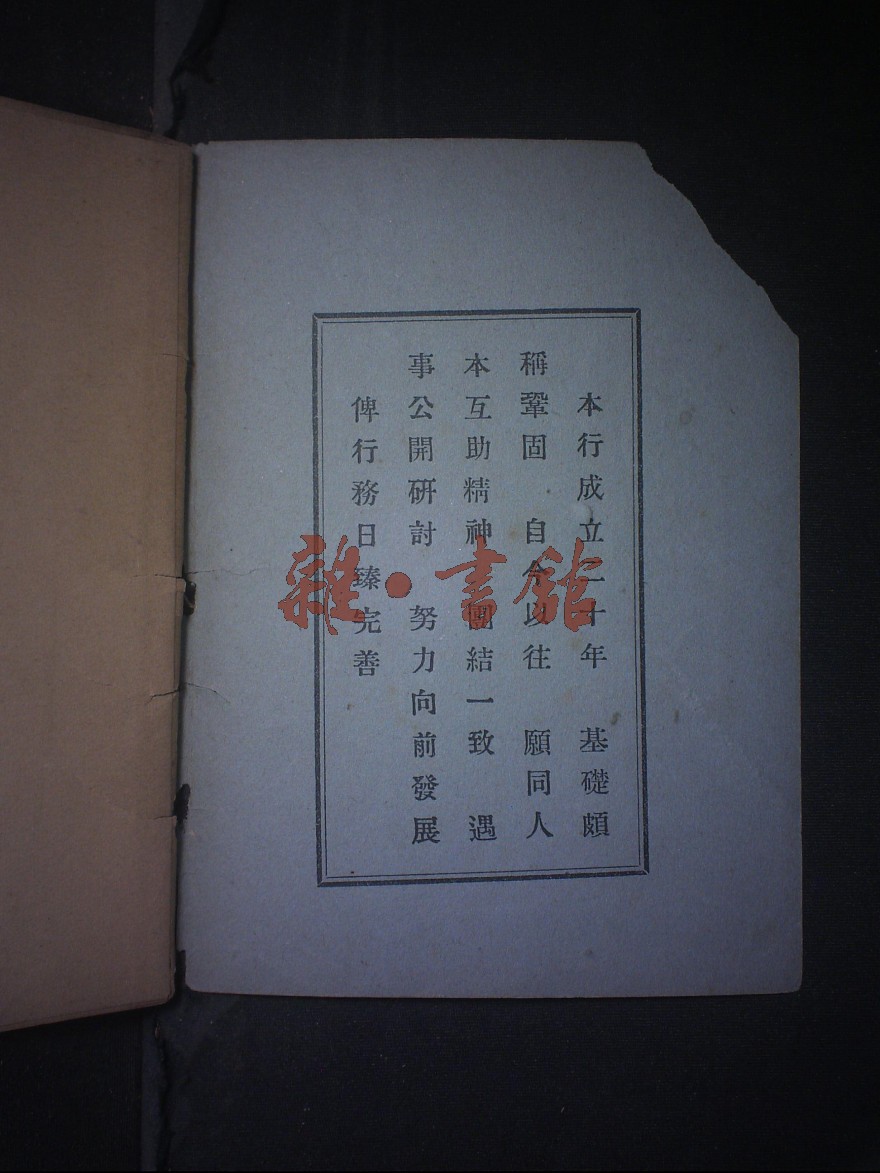 本行成立二十年　基礎頗
稱鞏固　自今以往　願同人
本互助精神　團結一致　遇
事公開研討　努力向前發展
俾行務日臻完善
雜·書館